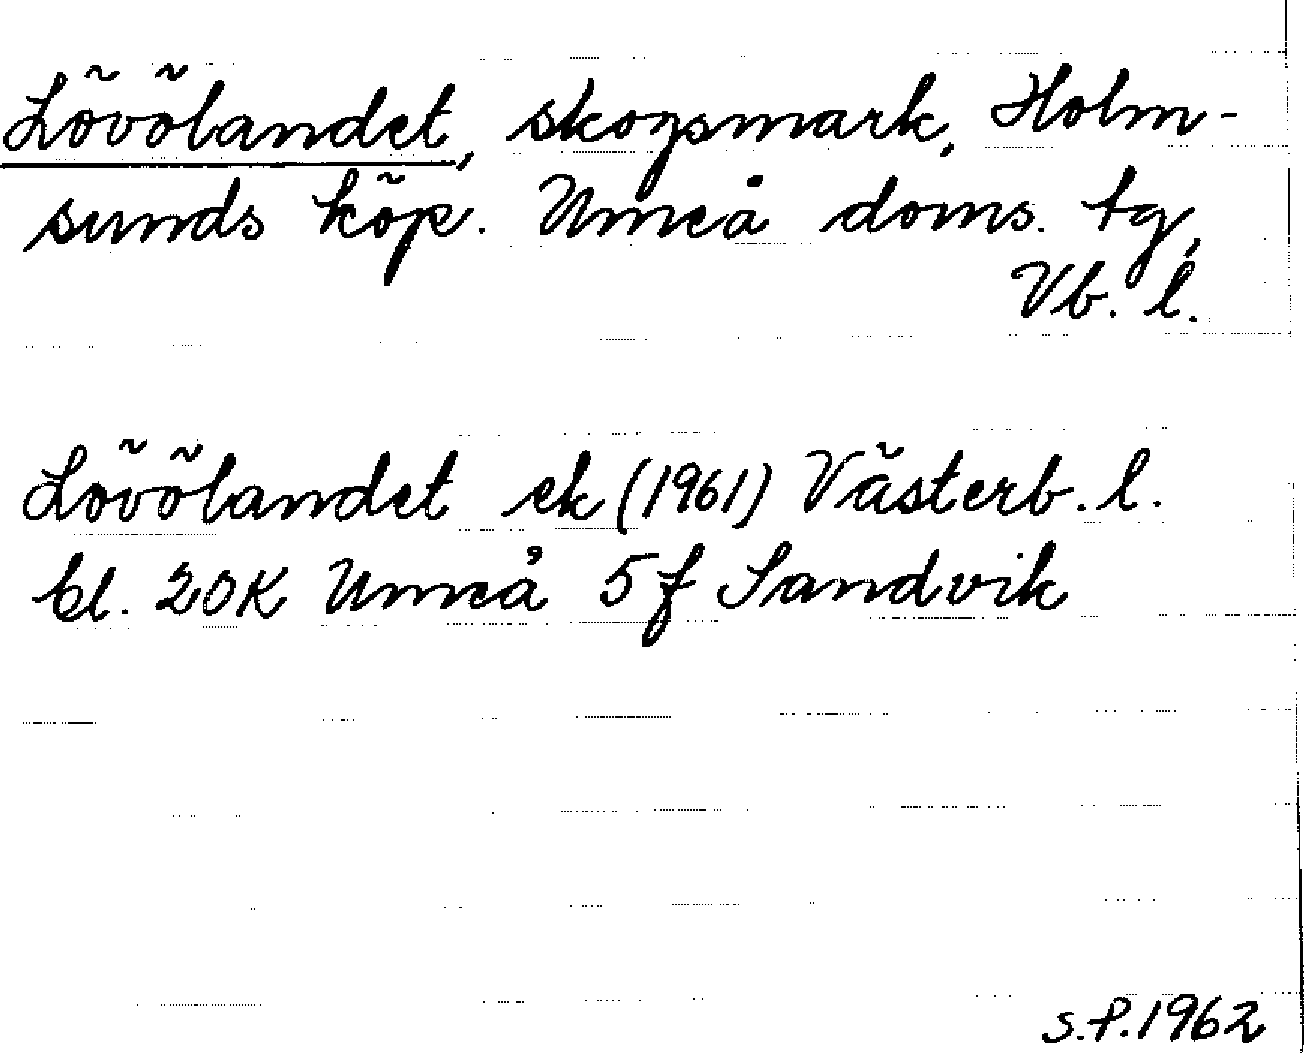 Lövölandet, skogsmark, Holm-
sunds köp. Umeå doms. tg,
Vb. l.
Lövölandet ek (1961) Västerb. l.
bl. 20K Umeå 5f Sandvik
S.P. 1962